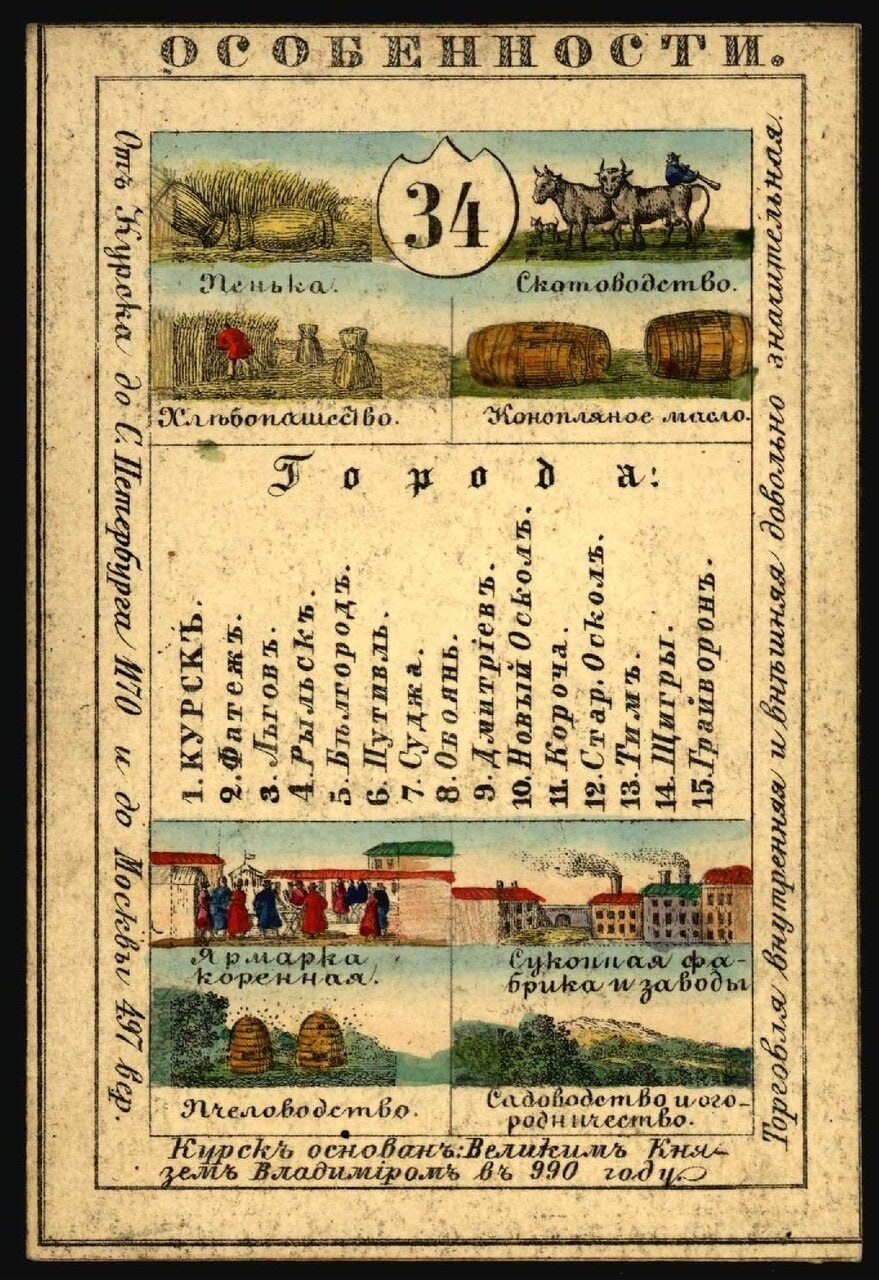 ОСОБЕННОСТИ.
34
Пенька.
Скотоводство.
Хлѣбопашество.
Конопляное масло.
Города:
1. КУРСКЪ.
2. Фатежъ.
3. Льговъ.
4. Рыльскъ.
5. Бѣлгородъ.
6. Путивль.
7. Суджа.
8. Обоянь.
9. Дмитріевъ.
10. Новый Осколъ.
11. Короча.
12. Стар. Осколъ.
13. Тимъ.
14. Щигры.
15. Грайворонъ.
Ярмарка
коренная.
Суконная фа-
брика и заводы
Пчеловодство.
Садоводство и ого-
родничество.
Курскъ основанъ: Великимъ Кня-
земъ Владиміромъ въ 990 году.
Отъ Курска до С. Петербурга 1170 и до Москвы 497 вер.
Торговля внутренняя и внѣшняя довольно значительная.